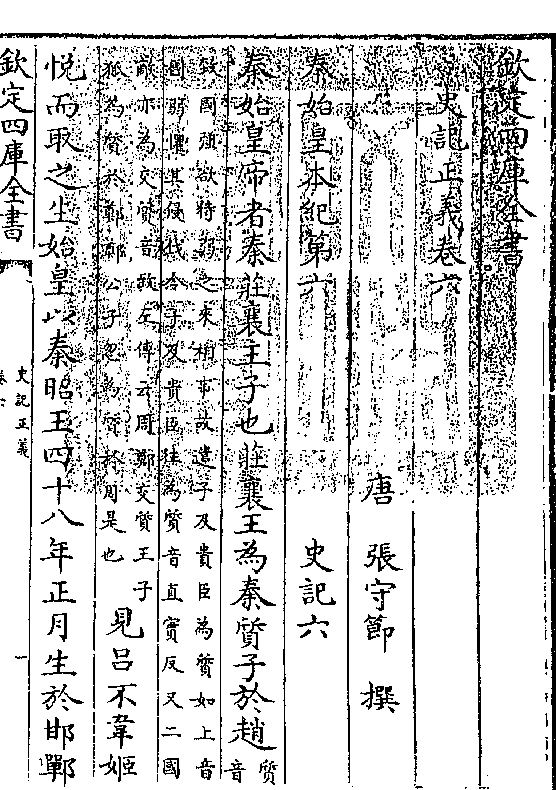 欽定四庫全書
史記正義卷六
唐 張守節 撰
秦始皇本紀第六 史記六
秦始皇帝者秦莊襄王子也莊襄王為秦質子於趙質音
致國強欲待弱之來相事故遣子及貴臣為質如上音
國弱懼其侵伐令子及貴臣往為質音直實反又二國
敵亦為交質音致左傳云周鄭交質王子
狐為質於鄭鄭公子忽為質於周是也
見呂不韋姬
悅而取之生始皇以秦昭王四十八年正月生於邯鄲
欽定四庫全書
史記正義
卷六
一